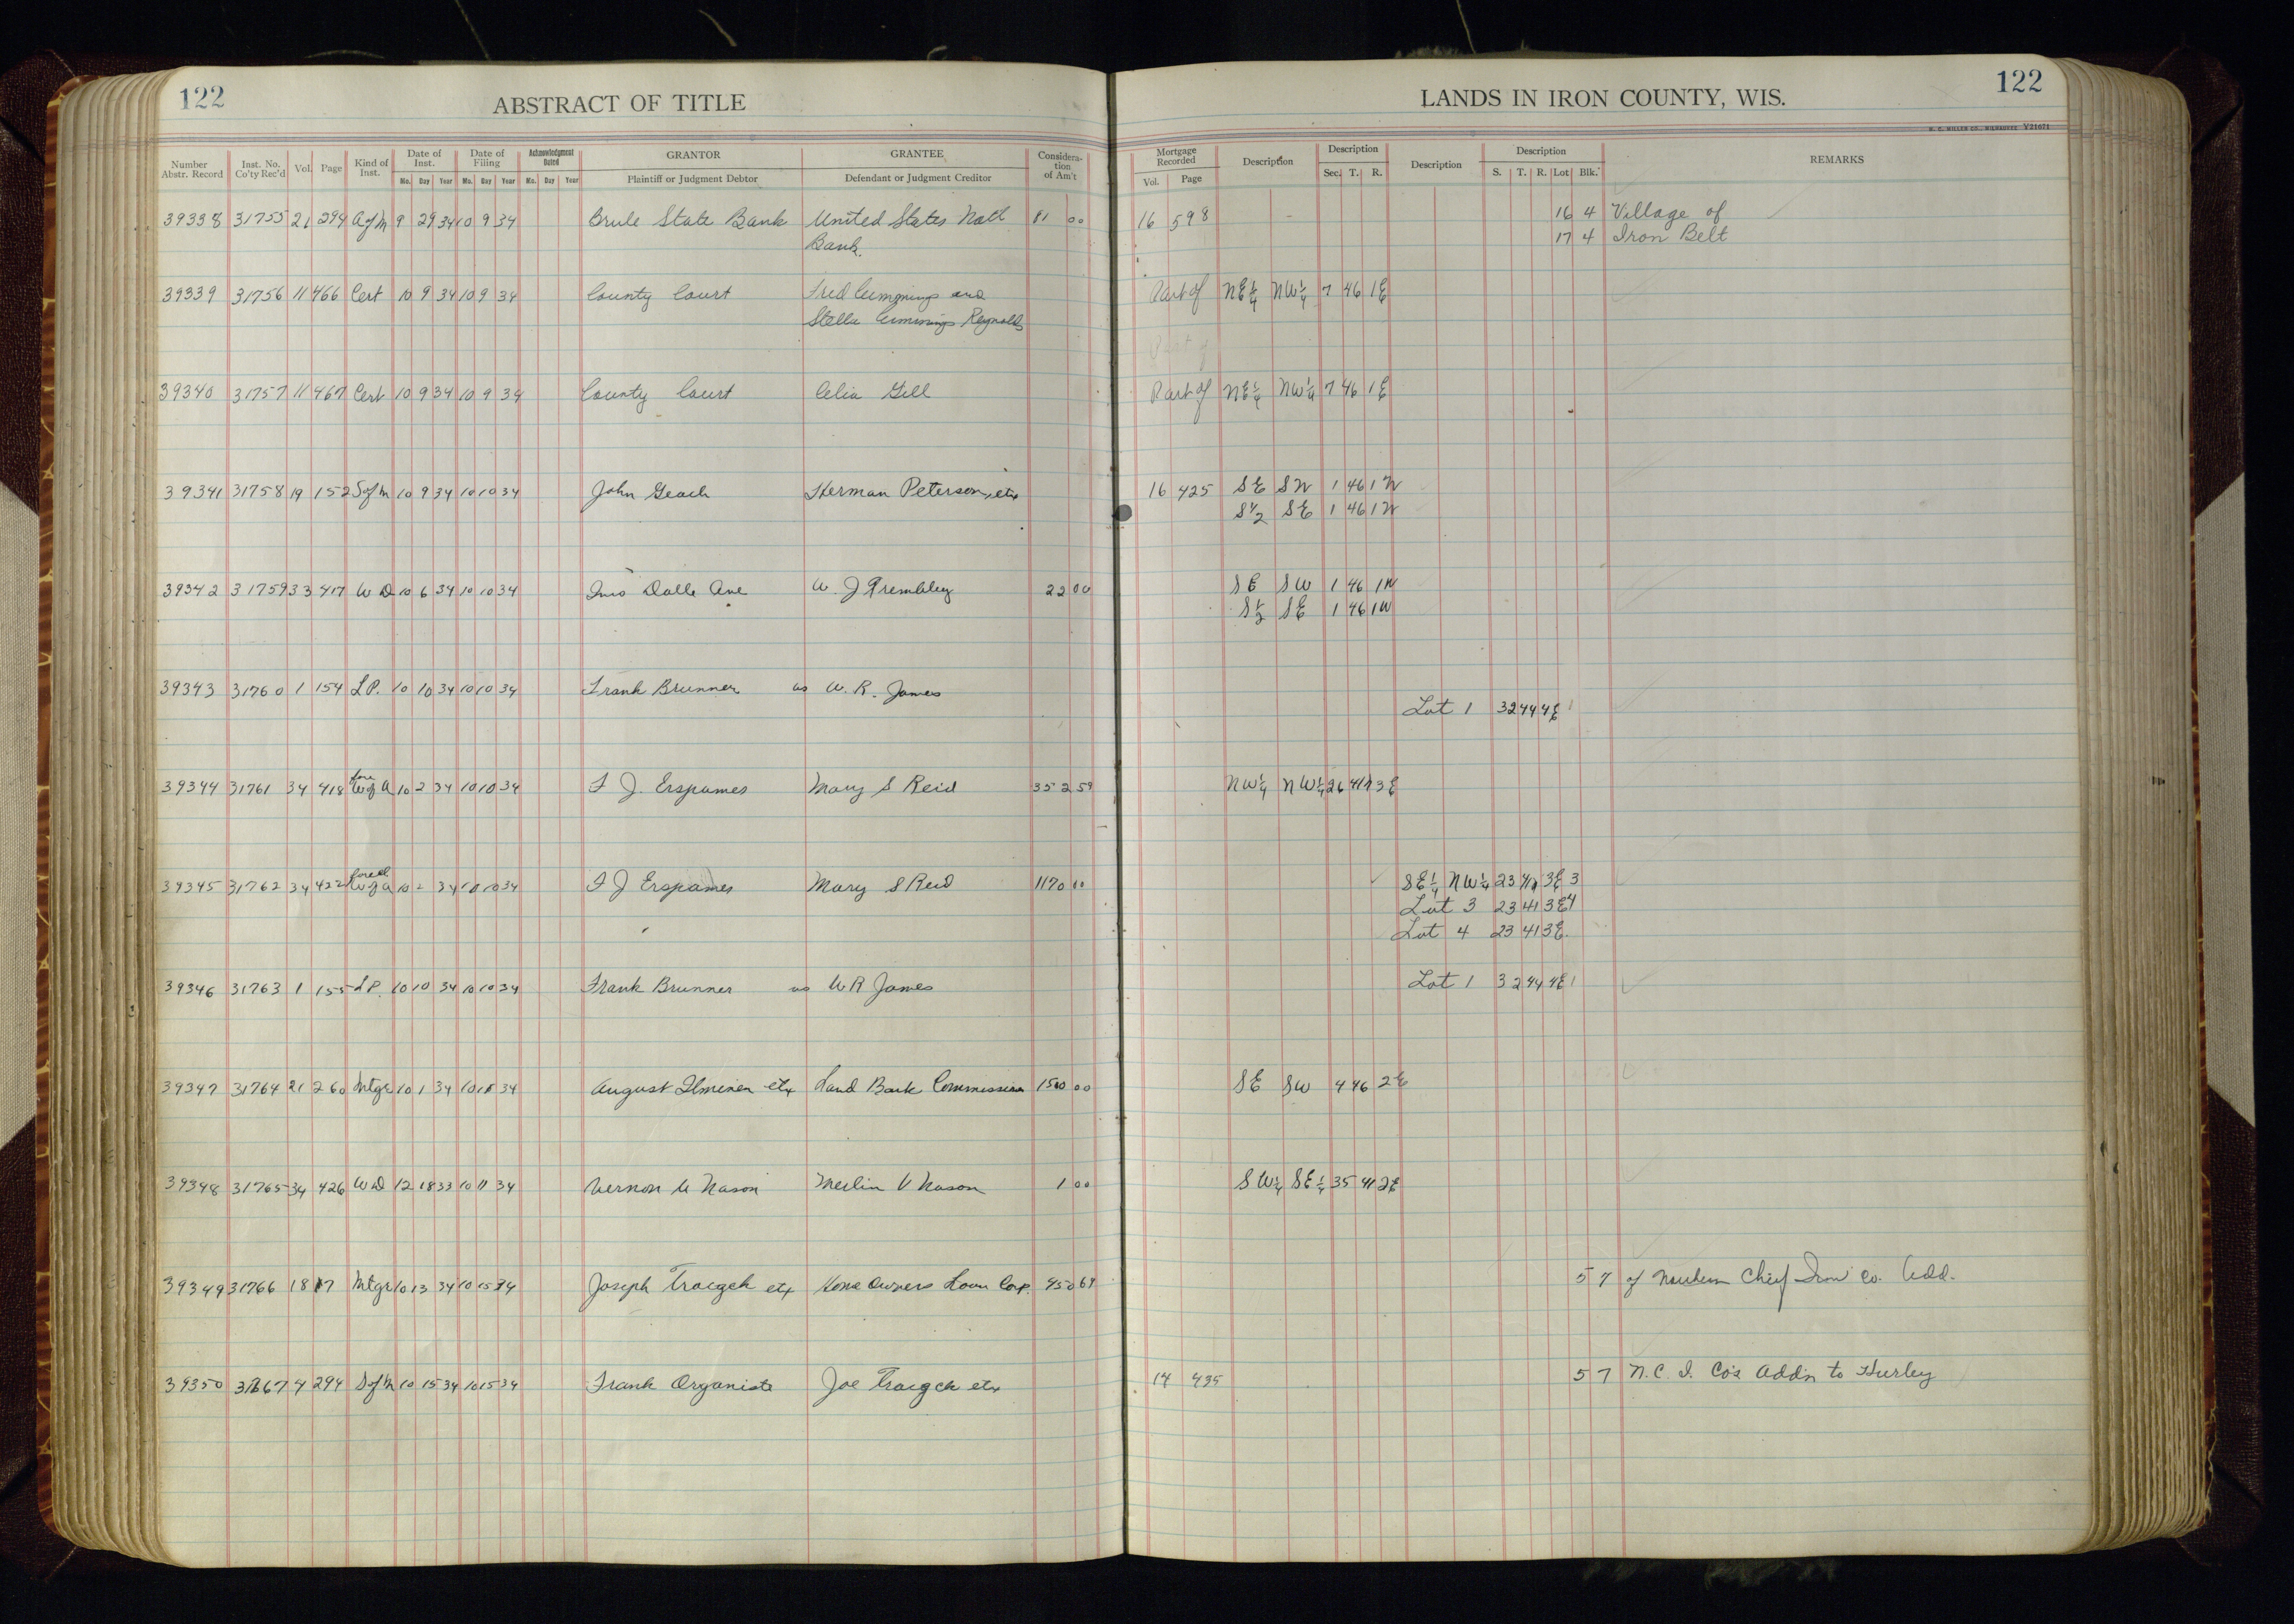 122
ABSTRACT OF TITLE
LANDS IN IRON COUNTY, WIS.
122
H. C. MILLER CO., MILWAUKEE V21671
Number Abstr. Record | Inst. No. Co'ty Rec'd | Vol. | Page | Kind of Inst. | Date of Inst. Mo. Day Year | Date of Filing Mo. Day Year | Acknowledgment Dated Mo. Day Year | GRANTOR Plaintiff or Judgment Debtor | GRANTEE Defendant or Judgment Creditor | Consideration of Am't | Mortgage Recorded Vol. Page | Description | Description Sec. T. R. | Description | Description S. T. R. Lot Blk. | REMARKS
39338 31755 21 294 A of M 9 29 34 10 9 34 Brule State Bank United States Natl 81 00 16 598 16 4 Village of
Bank. 17 4 Iron Belt
39339 31756 11 466 Cert 10 9 34 10 9 34 County Court Fred Cummings and Part of NE¼ NW¼ 7 46 1E
Stella Cummings Reynolds
Part of
39340 31757 11 467 Cert 10 9 34 10 9 34 County Court Celia Gill Part of NE¼ NW¼ 7 46 1E
39341 31758 19 152 S of M 10 9 34 10 10 34 John Geach Herman Peterson, etx 16 425 SE SW 1 46 1W
S½ SE 1 46 1W
39342 31759 33 417 W D 10 6 34 10 10 34 Dalle Ave W. J Trembley 22 00 SE SW 1 46 1W
S½ SE 1 46 1W
39343 31760 1 154 L P. 10 10 34 10 10 34 Frank Brunner vs W. R. James
Lot 1 32 44 4E 1
39344 31761 34 418 10 2 34 10 10 34 F J. Erspamer Mary S Reid 352 59 NW¼ NW¼ 26 41 3E
39345 31762 34 422 10 2 34 10 10 34 F J Erspamer Mary S Reid 1170 00 SE¼ NW¼ 23 41 3E 3
Lot 3 23 41 3E 4
Lot 4 23 41 3E.
39346 31763 1 155 L P. 10 10 34 10 10 34 Frank Brunner vs W R James Lot 1 32 44 4E 1
39347 31764 21 260 Mtge 10 1 34 10 11 34 August Ilmenen etx Land Bank Commissioner 1500 00 SE SW 4 46 2E
39348 31765 34 426 W D 12 18 33 10 11 34 Vernon U Nason Merlin V Nason 1 00 SW¼ SE¼ 35 41 2E
39349 31766 18 17 Mtge 10 13 34 10 15 34 Joseph Traczek etx Home Owners Loan Corp. 450 69 5 7 of Northern Chief Iron Co. Add.
39350 31767 4 294 S of M 10 15 34 10 15 34 Frank Organiste Joe Traczek etx 14 435 5 7 N. C. I. Co's Add'n to Hurley